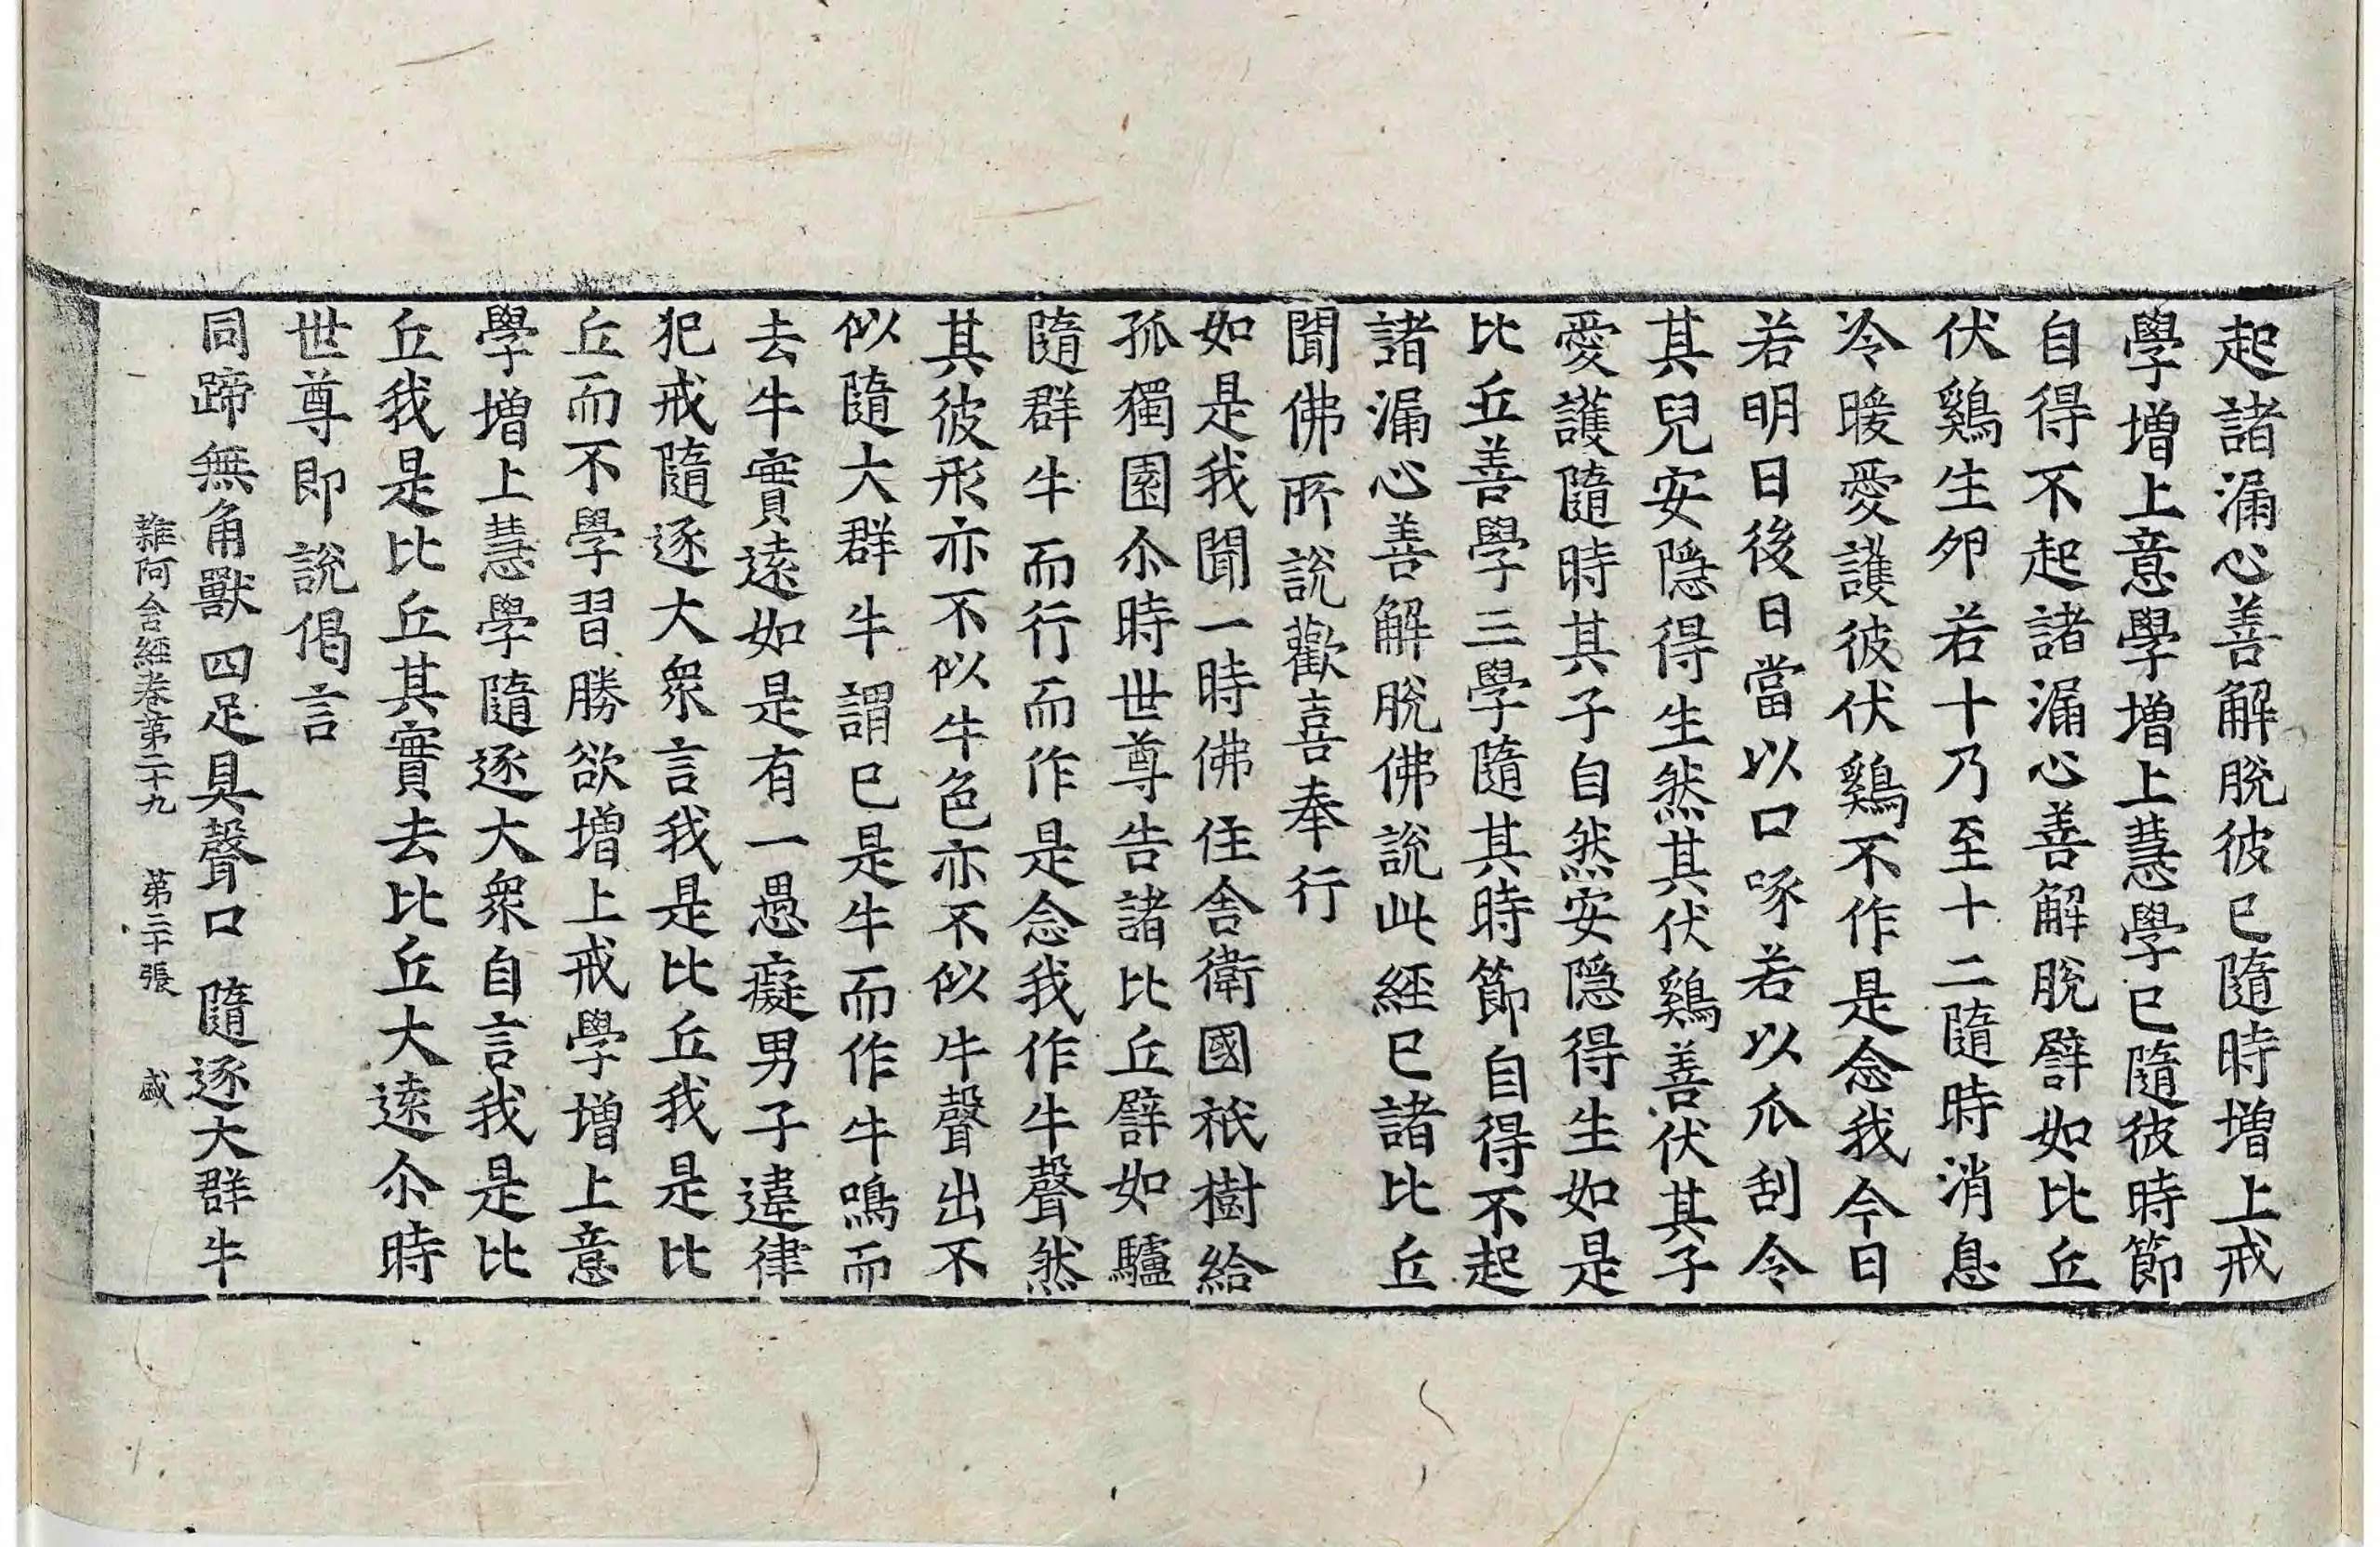 起諸漏心善解脫彼已隨時增上戒
學增上意學增上慧學已隨彼時節
自得不起諸漏心善解脫譬如比丘
伏鷄生卵若十乃至十二隨時消息
冷暖愛護彼伏鷄不作是念我今日
若明日後日當以口啄若以爪刮令
其兒安隱得生然其伏鷄善伏其子
愛護隨時其子自然安隱得生如是
比丘善學三學隨其時節自得不起
諸漏心善解脫佛說此經已諸比丘
聞佛所說歡喜奉行
如是我聞一時佛住舍衛國祇樹給
孤獨園尒時世尊告諸比丘譬如驢
隨群牛而行而作是念我作牛聲然
其彼形亦不似牛色亦不似牛聲出不
似隨大群牛謂已是牛而作牛鳴而
去牛實遠如是有一愚癡男子違律
犯戒隨逐大衆言我是比丘我是比
丘而不學習勝欲增上戒學增上意
學增上慧學隨逐大衆自言我是比
丘我是比丘其實去比丘大遠尒時
世尊即說偈言
同蹄無角獸 四足具聲口 隨逐大群牛
雜阿含經卷第二十九 第三十張 盛